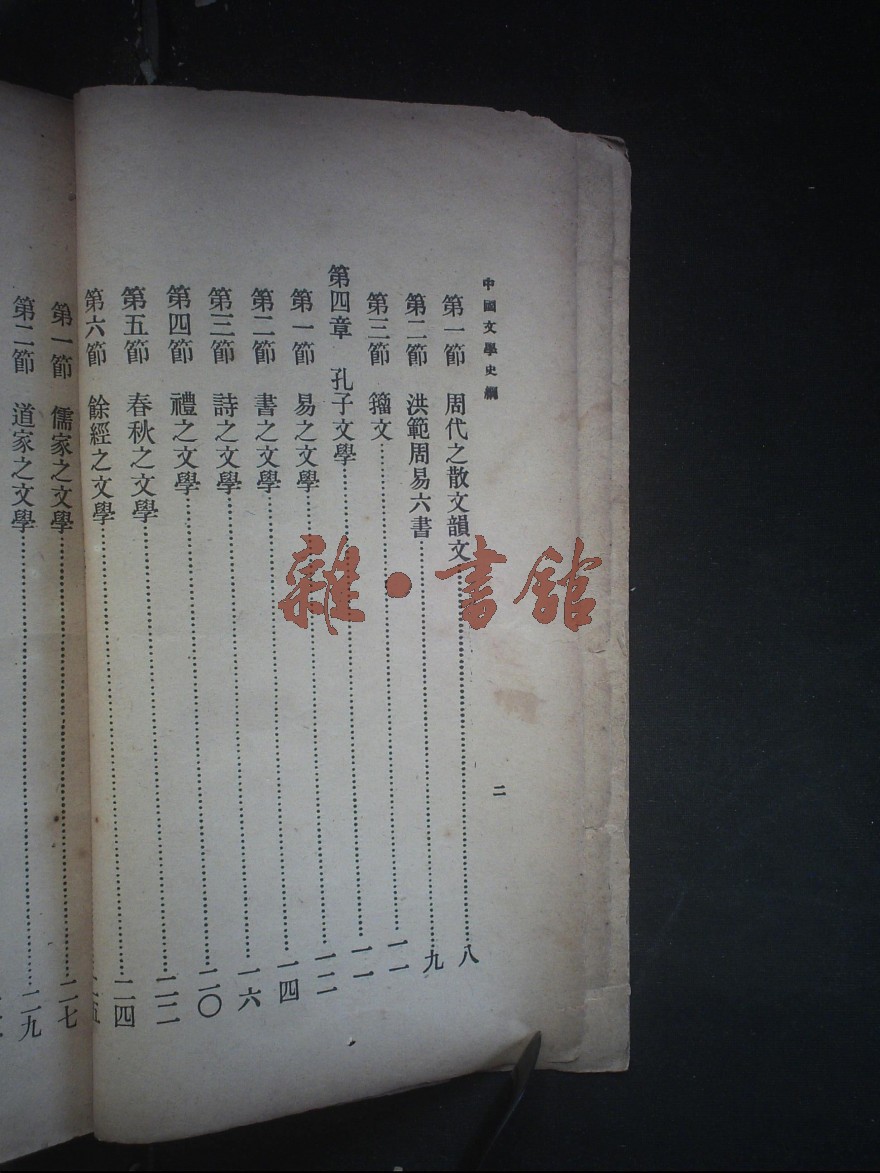 中國文學史綱
第一節 周代之散文韻文……八
第二節 洪範周易六書……九
第三節 籀文……一一
第四章 孔子文學……一一
第一節 易之文學……一二
第二節 書之文學……一四
第三節 詩之文學……一六
第四節 禮之文學……二〇
第五節 春秋之文學……二二
第六節 餘經之文學……二四
二
第一節 儒家之文學……二七
第二節 道家之文學……二九
雜·書館